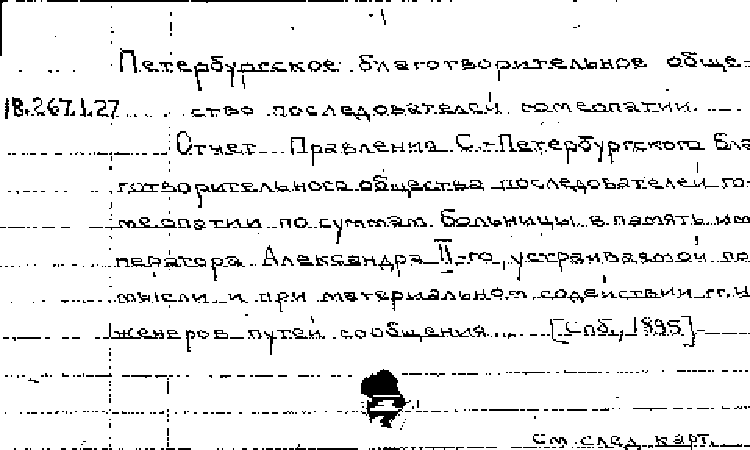 Петербургское благотворительное обще-
18.267.1.27 ство последователей гомеопатии.
Отчет Правления С.-Петербургского бла
готворительного общества последователей го-
меопатии по суммам больницы в память им
ператора Александра II-го, устраиваемой по
мысли и при материальном содействии гг. и
женеров путей сообщения... [Спб., 1895]
См. след. карт.